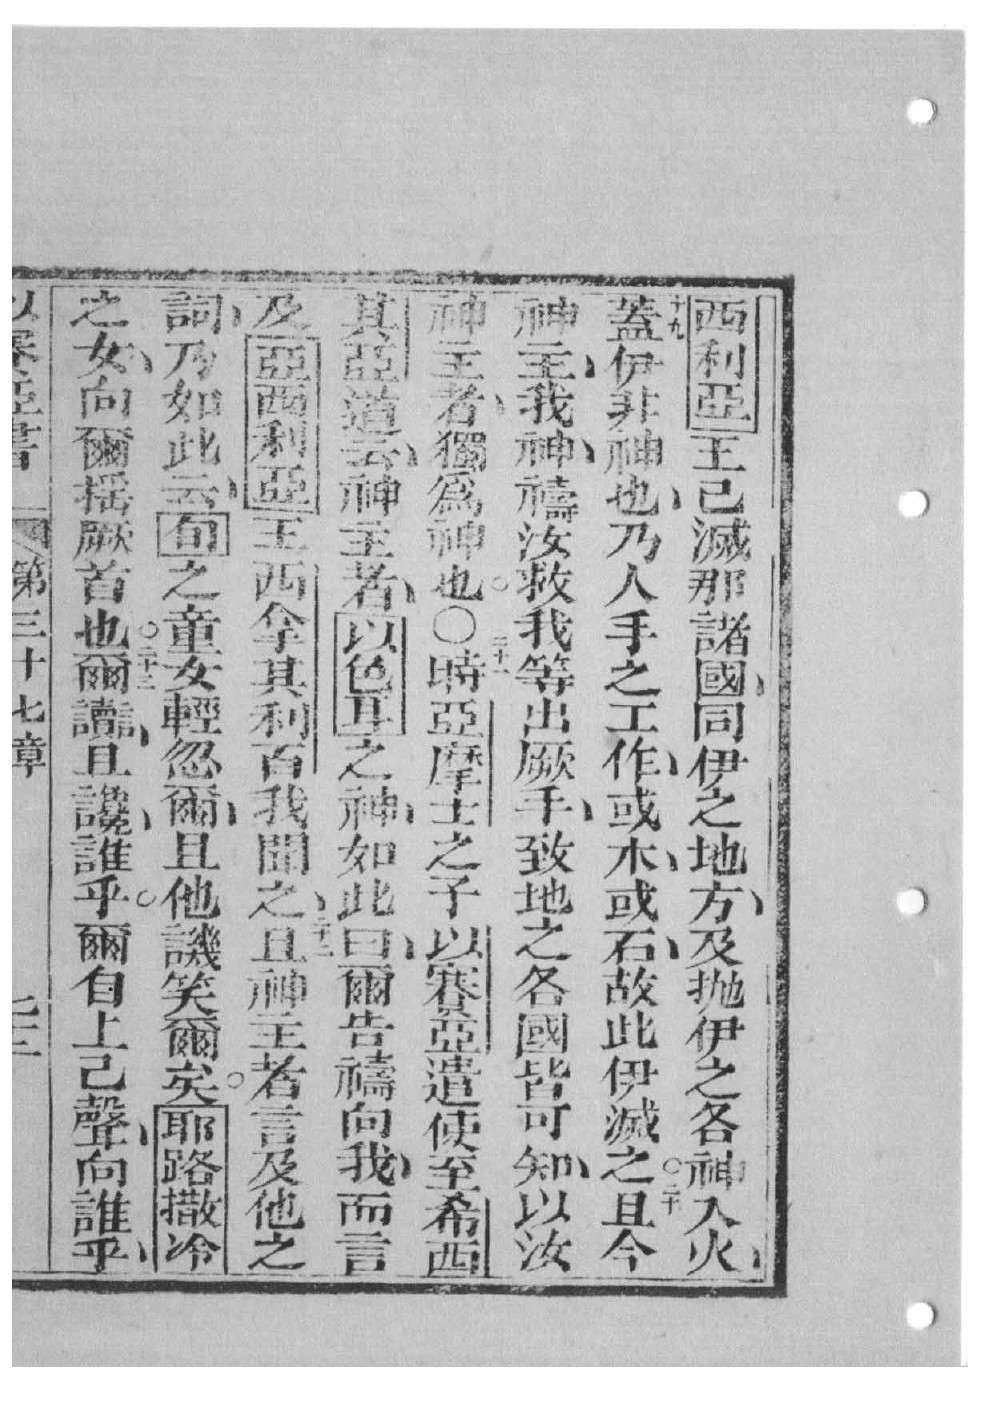 西利亞王已滅那諸國同伊之地方及抛伊之各神入火
十九蓋伊非神也乃人手之工作或木或石故此伊滅之○二十且今
神主我神禱汝救我等出厥手致地之各國皆可知以汝
神主者獨為神也○二十一時亞摩士之子以賽亞遣使至希西
其亞道云神主者以色耳之神如此曰爾告禱向我而言
及亞西利亞王西拿其利百我聞之二十二且神主者言及他之
詞乃如此云旬之童女輕忽爾且他譏笑爾矣○耶路撒冷
之女向爾搖厥首也○二十三爾讟且讒誰乎○爾自上己聲向誰乎
以賽亞書 第三十七章